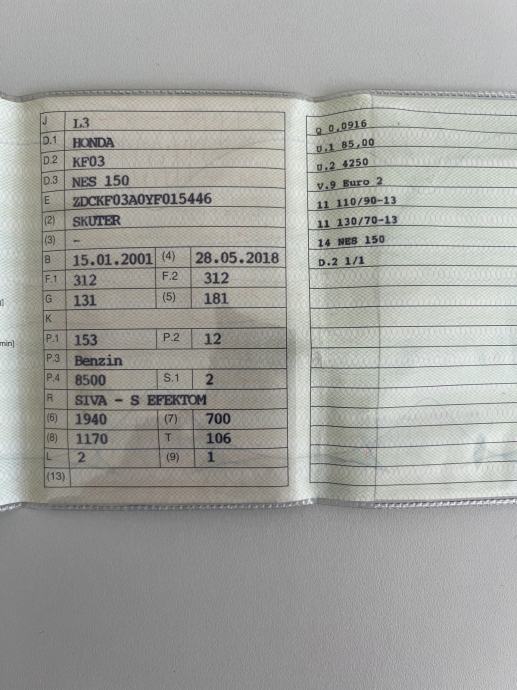 J L3
D.1 HONDA
D.2 KF03
D.3 NES 150
E ZDCKF03A0YF015446
(2) SKUTER
(3) –
B 15.01.2001 (4) 28.05.2018
F.1 312 F.2 312
G 131 (5) 181
K
P.1 153 P.2 12
P.3 Benzin
P.4 8500 S.1 2
R SIVA - S EFEKTOM
(6) 1940 (7) 700
(8) 1170 T 106
L 2 (9) 1
(13)
min]
Q 0,0916
U.1 85,00
U.2 4250
V.9 Euro 2
11 110/90-13
11 130/70-13
14 NES 150
D.2 1/1